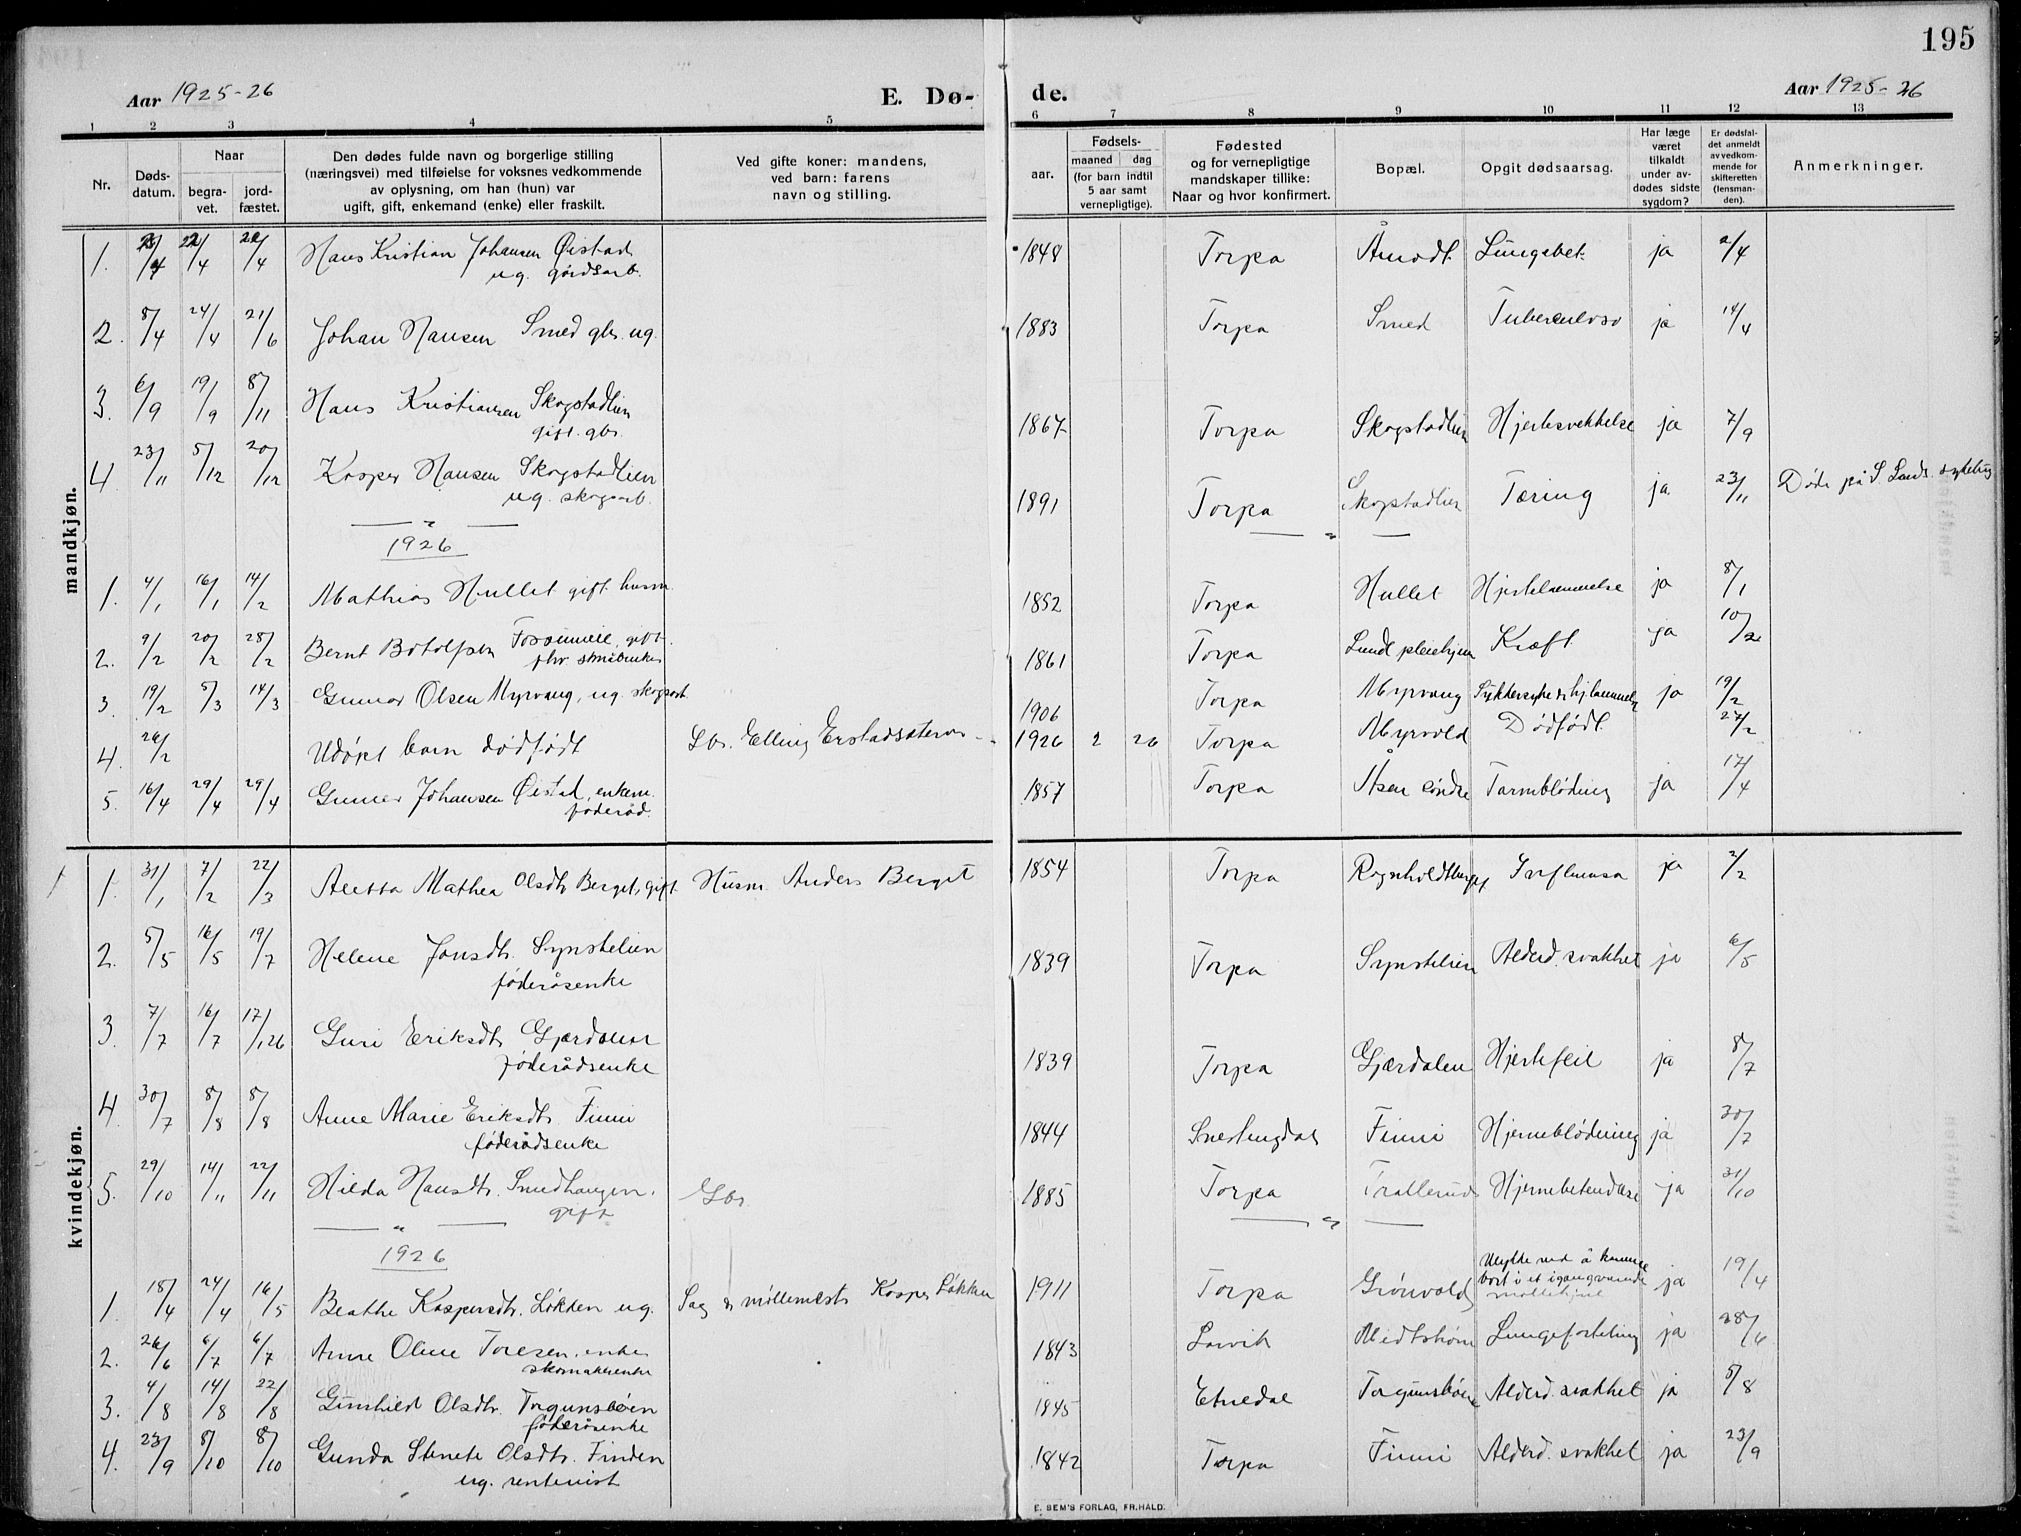 195
Aar 1925-26
E. Dø-
de.
Aar 1925-26
1 2 3 4 5 6 7 8 9 10 11 12 13
Nr.
Døds-
datum.
Naar
begra-
vet.
jord-
fæstet.
Den dødes fulde navn og borgerlige stilling
(næringsvei) med tilføielse for voksnes vedkommende
av oplysning, om han (hun) var
ugift, gift, enkemand (enke) eller fraskilt.
Ved gifte koner: mandens,
ved barn: farens
navn og stilling.
Fødsels-
aar.
maaned dag
(for barn indtil
5 aar samt
vernepligtige).
Fødested
og for vernepligtige
mandskaper tillike:
Naar og hvor konfirmert.
Bopæl.
Opgit dødsaarsag.
Har læge
været
tilkaldt
under av-
dødes sidste
sygdom?
Er dødsfal-
det anmeldt
av vedkom-
mende for
skifteretten
(lensman-
den).
Anmerkninger.
mandkjøn.
1. 22/4 21/4 Hans Kristian Johansen Øistad 1848 Torpa Åmodt Lungebet. ja 2/4
ug. gårdsarb.
2. 8/4 24/4 21/6 Johan Hansen Smed gbr. ug. 1883 Torpa Smed Tuberculose ja 14/4
3. 6/9 19/9 8/11 Hans Kristiansen Skogstadlien 1867 Torpa Skogstadlien Hjertesvekkelse ja 7/9
gift. gbr.
4. 23/11 5/12 20/12 Kasper Hansen Skogstadlien 1891 Torpa Skogstadlien Tæring ja 23/11 Døde på S. Lands sykehus
ug. skogsarb.
1926
1. 4/1 16/1 14/2 Mathias Hullet gift husm. 1852 Torpa Hullet Hjertelammelse ja 8/1
2. 9/2 20/2 28/2 Bernt Botolfsen gift 1861 Torpa Lund pleiehjem Kræft ja 10/2
3. 19/2 5/3 14/3 Gunnar Olsen Myrvang, ug. skogsarb. 1906 Torpa Myrvang ja 19/2
4. 26/2 Udøpt barn dødfødt Gbr. Elling Erstadsæteren 1926 2 26 Torpa Myrvold Dødfødt 27/2
5. 16/4 29/4 29/4 Gunnar Johansen Øistad, enkem. 1857 Torpa Åsen søndre Tarmblødning ja 17/4
føderåd.
kvindekjøn.
1. 31/1 7/2 22/3 Aletta Mathea Olsdtr. Berget, gift Husm. Anders Berget 1854 Torpa Ragnholdtberget Influensa ja 2/2
2. 5/5 16/5 19/7 Helene Jonsdtr. Synstelien 1839 Torpa Synstelien Alderd. svakhet ja 6/5
føderåsenke
3. 7/7 16/7 17/1 26 Guri Eriksdtr Gjærdalen 1839 Torpa Gjærdalen Hjertefeil ja 8/7
føderådsenke
4. 30/7 8/8 8/8 Anne Marie Eriksdtr. Finni 1844 Snertingdal Finni Hjerneblødning ja 30/7
føderådsenke
5. 29/10 14/11 22/11 Hilda Hansdtr. Smedhaugen. Gbr. 1885 Torpa Trallerud Hjernebetendelse ja 31/10
gift
1926
1. 18/4 24/4 16/5 Beathe Kaspersdtr. Løkken ug. Sag & møllemest. Kasper Løkken 1911 Torpa Grønvold Ulykke ved å komme ja 19/4
bort i et igangværende
møllehjul
2. 26/6 6/7 6/7 Anne Oline Toresen, enke 1843 Larvik Lungefortetning ja 28/6
skomakerenke
3. 4/8 14/8 22/8 Gunhild Olsdtr. Torgunsbøen 1845 Etnedal Torgunsbøen Alderd. svakhet ja 5/8
føderåsenke
4. 23/9 8/10 8/10 Gunda Stenete Olsdtr. Finden 1842 Torpa Finni Alderd. svakhet ja 23/9
ug. rentenist
E. SEM'S FORLAG, FR.HALD.